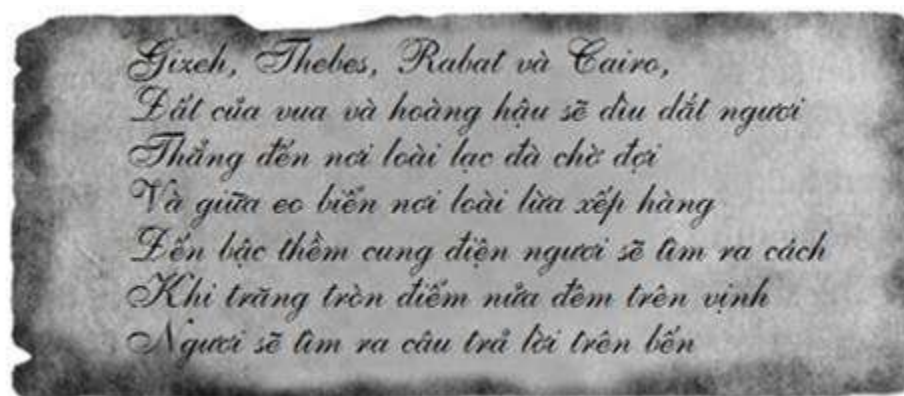 Gizeh, Thebes, Rabat và Cairo,
Đất của vua và hoàng hậu sẽ dìu dắt ngươi
Thẳng đến nơi loài lạc đà chờ đợi
Và giữa eo biển nơi loài lừa xếp hàng
Đến bậc thềm cung điện ngươi sẽ tìm ra cách
Khi trăng tròn điểm nửa đêm trên vịnh
Ngươi sẽ tìm ra câu trả lời trên bến